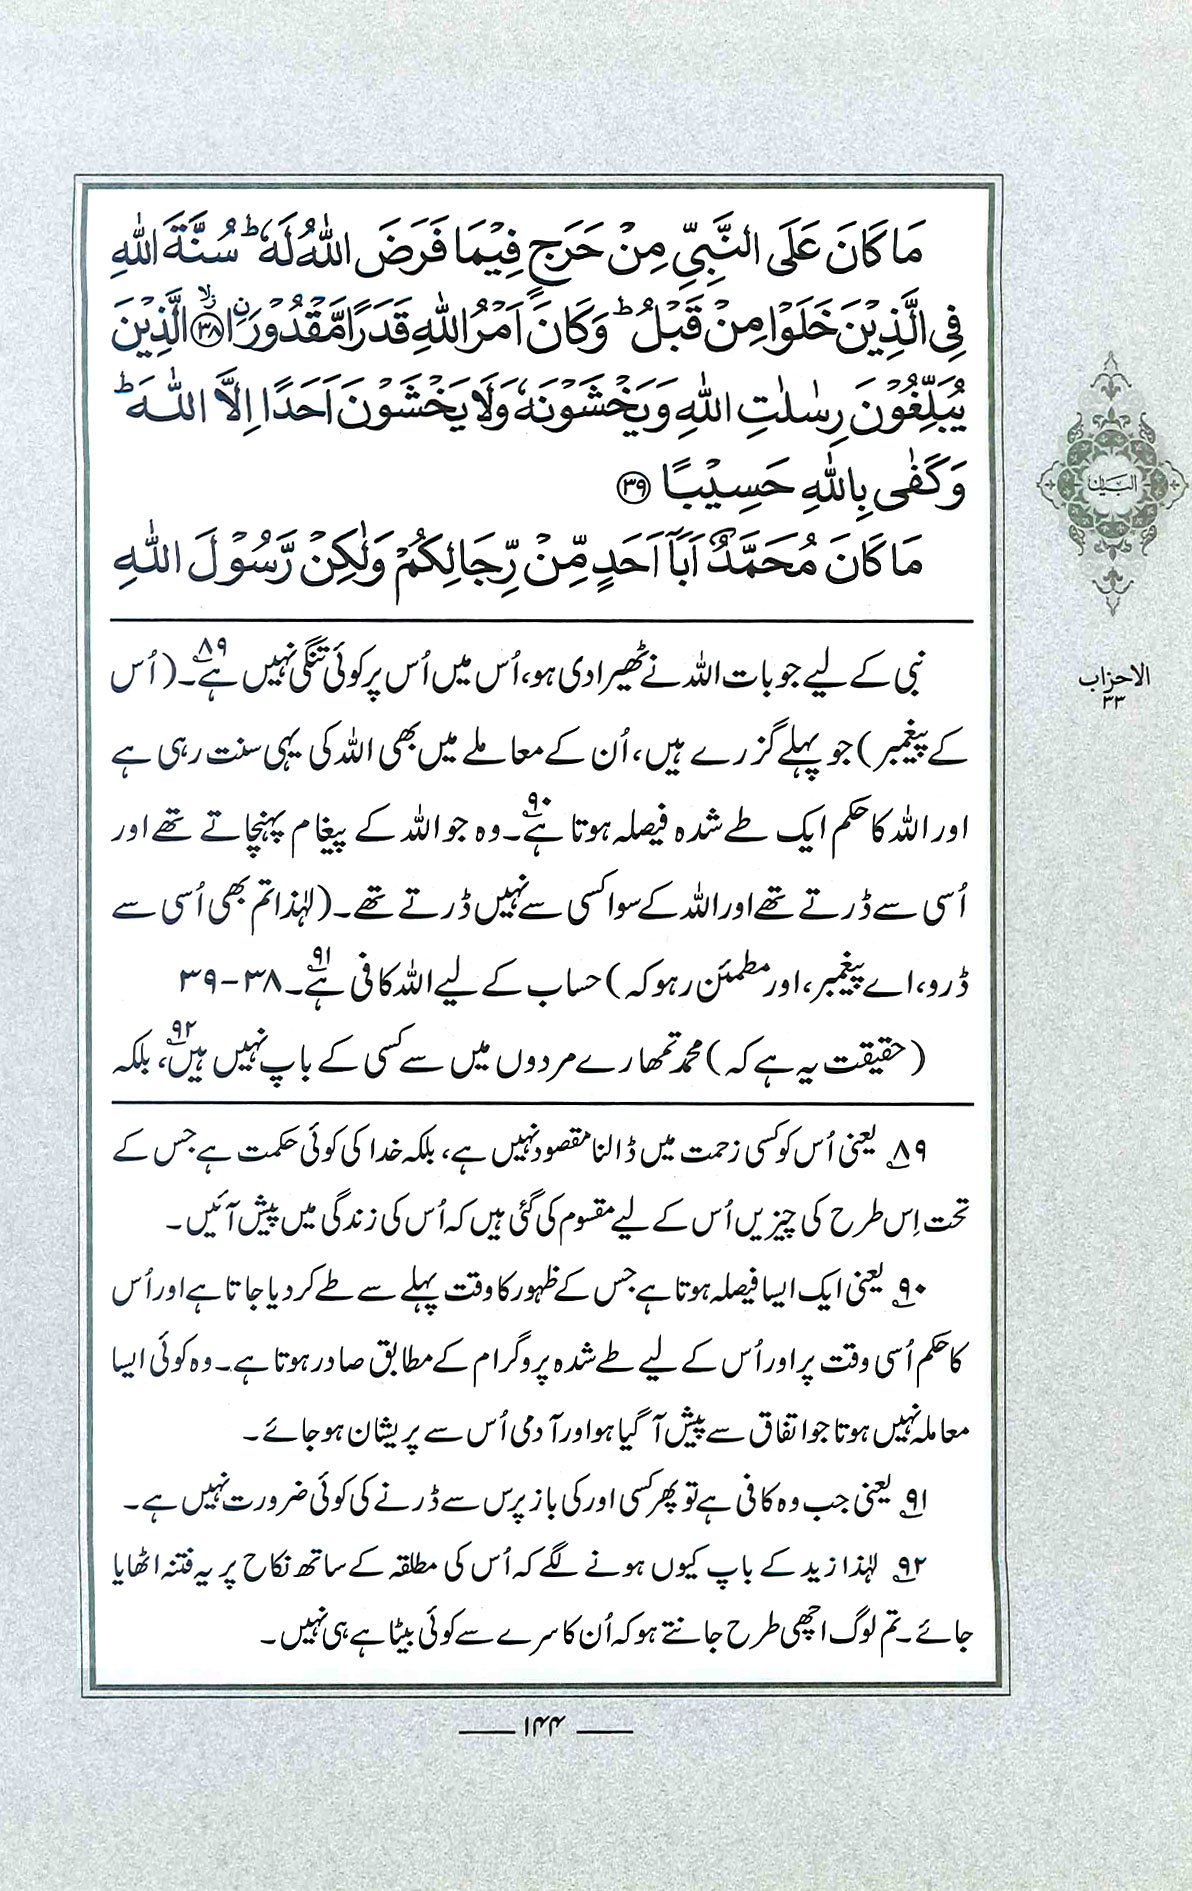 مَا كَانَ عَلَى النَّبِيِّ مِنْ حَرَجٍ فِيْمَا فَرَضَ اللّٰهُ لَهٗ ؕ سُنَّةَ اللّٰهِ
فِي الَّذِيْنَ خَلَوْا مِنْ قَبْلُ ؕ وَكَانَ اَمْرُ اللّٰهِ قَدَرًا مَّقْدُوْرَاۨ ﴿۳۸﴾ۙ الَّذِيْنَ
يُبَلِّغُوْنَ رِسٰلٰتِ اللّٰهِ وَيَخْشَوْنَهٗ وَلَا يَخْشَوْنَ اَحَدًا اِلَّا اللّٰهَ ؕ
وَكَفٰى بِاللّٰهِ حَسِيْبًا ﴿۳۹﴾
مَا كَانَ مُحَمَّدٌ اَبَآ اَحَدٍ مِّنْ رِّجَالِكُمْ وَلٰكِنْ رَّسُوْلَ اللّٰهِ
البیان
الاحزاب
۳۳
نبی کے لیے جو بات اللہ نے ٹھیرا دی ہو، اُس میں اُس پر کوئی تنگی نہیں ہے۔۸۹ (اُس
کے پیغمبر) جو پہلے گزرے ہیں، اُن کے معاملے میں بھی اللہ کی یہی سنت رہی ہے
اور اللہ کا حکم ایک طے شدہ فیصلہ ہوتا ہے۔۹۰ وہ جو اللہ کے پیغام پہنچاتے تھے اور
اُسی سے ڈرتے تھے اور اللہ کے سوا کسی سے نہیں ڈرتے تھے۔ (لہٰذا تم بھی اُسی سے
ڈرو، اے پیغمبر، اور مطمئن رہو کہ) حساب کے لیے اللہ کافی ہے۔۹۱ ۳۸-۳۹
(حقیقت یہ ہے کہ) محمد تمھارے مردوں میں سے کسی کے باپ نہیں ہیں،۹۲ بلکہ
۸۹ یعنی اُس کو کسی زحمت میں ڈالنا مقصود نہیں ہے، بلکہ خدا کی کوئی حکمت ہے جس کے
تحت اِس طرح کی چیزیں اُس کے لیے مقسوم کی گئی ہیں کہ اُس کی زندگی میں پیش آئیں۔
۹۰ یعنی ایک ایسا فیصلہ ہوتا ہے جس کے ظہور کا وقت پہلے سے طے کر دیا جاتا ہے اور اُس
کا حکم اُسی وقت پر اور اُس کے لیے طے شدہ پروگرام کے مطابق صادر ہوتا ہے۔ وہ کوئی ایسا
معاملہ نہیں ہوتا جو اتفاق سے پیش آ گیا ہو اور آدمی اُس سے پریشان ہو جائے۔
۹۱ یعنی جب وہ کافی ہے تو پھر کسی اور کی باز پرس سے ڈرنے کی کوئی ضرورت نہیں ہے۔
۹۲ لہٰذا زید کے باپ کیوں ہونے لگے کہ اُس کی مطلقہ کے ساتھ نکاح پر یہ فتنہ اٹھایا
جائے۔ تم لوگ اچھی طرح جانتے ہو کہ اُن کا سرے سے کوئی بیٹا ہے ہی نہیں۔
۱۴۴